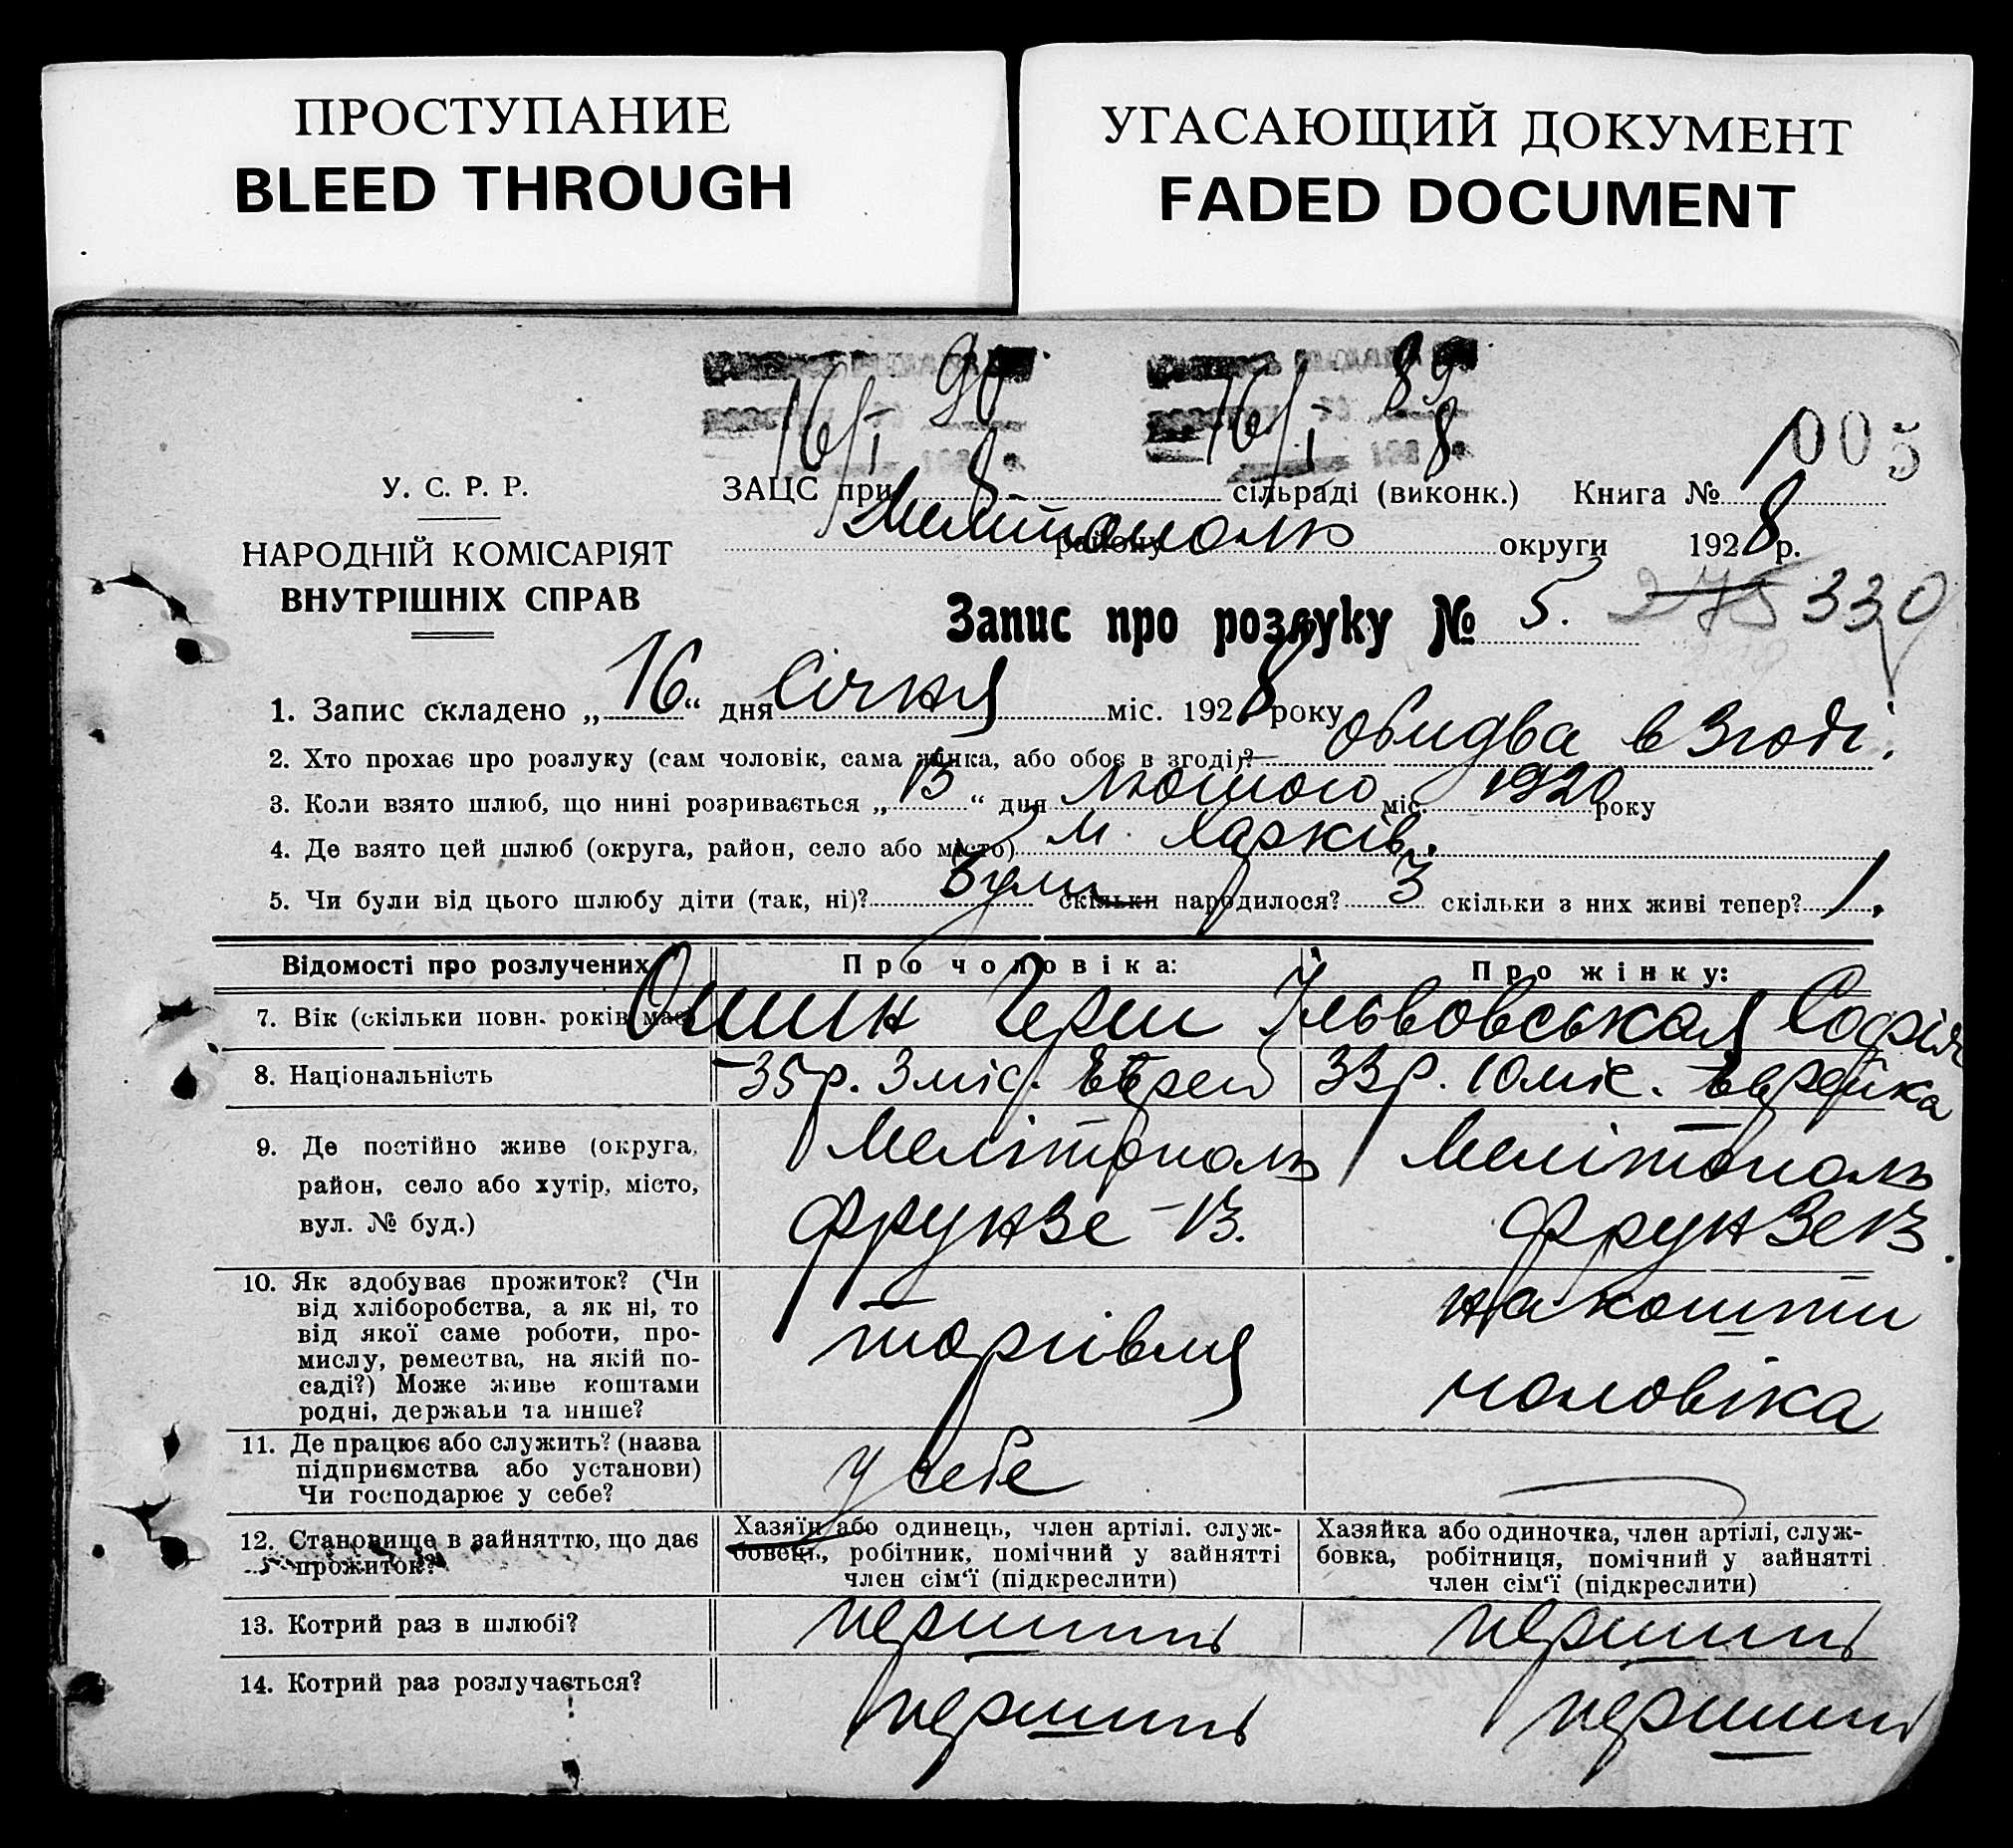 ПРОСТУПАНИЕ
BLEED THROUGH
УГАСАЮЩИЙ ДОКУМЕНТ
FADED DOCUMENT
16/I 90 16/I 89
8 8
005
У. С. Р. Р.
НАРОДНІЙ КОМІСАРІЯТ
ВНУТРІШНІХ СПРАВ
ЗАЦС при сільраді (виконк.) Книга № 1
Мелітополь району округи 1928 р.
Запис про розлуку № 5. 275 330
1. Запис складено „16“ дня Січня міс. 1928 року
2. Хто прохає про розлуку (сам чоловік, сама жінка, або обоє в згоді)? Обидва в згоді.
3. Коли взято шлюб, що нині розривається „13“ дня лютого міс. 1920 року
4. Де взято цей шлюб (округа, район, село або місто) м. Харків.
5. Чи були від цього шлюбу діти (так, ні)? Були скільки народилося? 3 скільки з них живі тепер? 1.
Відомості про розлучених Про чоловіка: Про жінку:
7. Вік (скільки повн. років має) Герш Львовськая Софія
8. Національність 35 р. 3 міс. Еврей 33 р. 10 міс. Еврейка
9. Де постійно живе (округа,
район, село або хутір, місто,
вул. № буд.)
Мелітополь
Фрунзе – 13.
Мелітополь
Фрунзе 13.
10. Як здобуває прожиток? (Чи
від хліборобства, а як ні, то
від якої саме роботи, про-
мислу, ремества, на якій по-
саді?) Може живе коштами
родні, держави та инше?
торгівля
на кошти
чоловіка
11. Де працює або служить? (назва
підприємства або установи)
Чи господарює у себе?
у себе
12. Становище в зайняттю, що дає
прожиток?
Хазяїн або одинець, член артілі. служ-
бовець, робітник, помічний у зайнятті
член сім‘ї (підкреслити)
Хазяйка або одиночка, член артілі, служ-
бовка, робітниця, помічний у зайнятті
член сім‘ї (підкреслити)
13. Котрий раз в шлюбі? перший перший
14. Котрий раз розлучається? перший перший